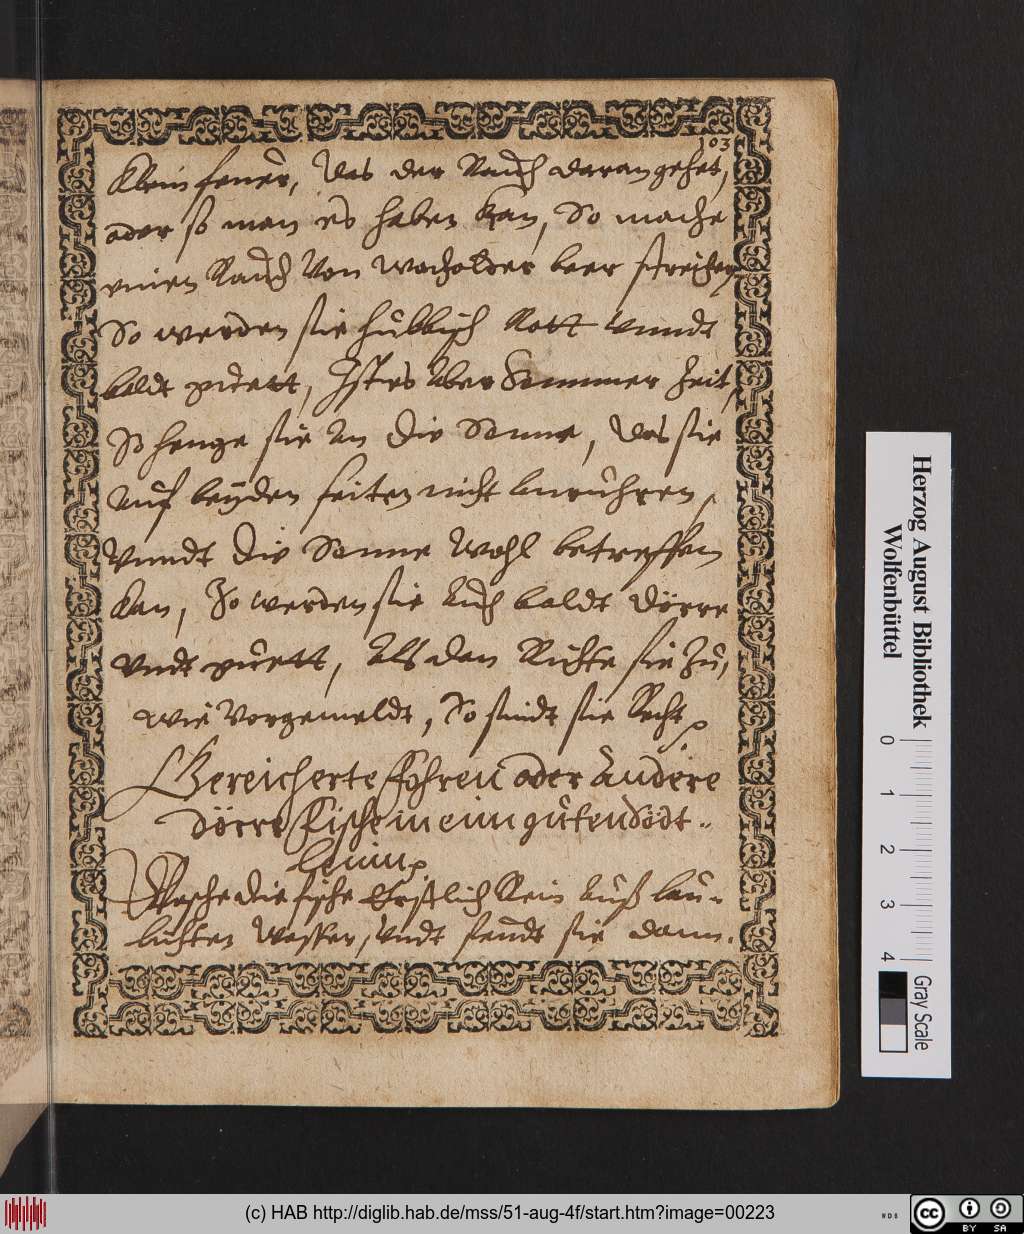 103
Klein feuer, das der Rauch daran gehet,
oder so man es haben kan, So mache
einen Rauch von wacholder beer
So werden sie hubsch Rott vnndt
baldt, Ist es aber Sommer Zeit,
So henge sie an die Sonne, das sie
auf beÿden seiten nicht anruhren,
vnndt die Sonne wohl betreffen
kan, So werden sie auch baldt dörre
vndt, als dan Richte sie Zu,
wie vorgemeldt, So sindt sie Recht
Gereicherte fohren oder andere
dörre Fische in einn guten södt-
lenin
Wasche die fische Erstlich Rein auß lau-
lichten Wasser, vndt seudt sie dann.
Herzog August Bibliothek
Wolfenbüttel
0 1 2 3 4
Gray Scale
(c) HAB http://diglib.hab.de/mss/51-aug-4f/start.htm?image=00223
WDB
cc BY SA